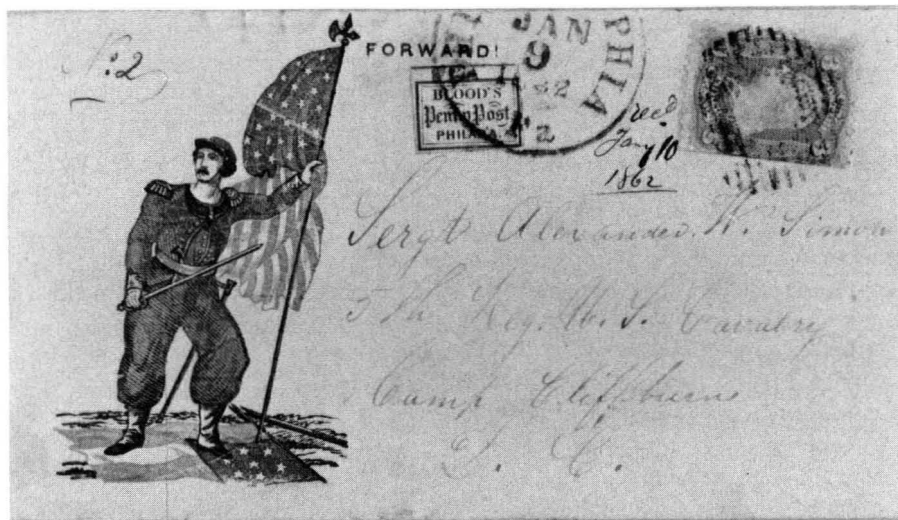 No. 2
FORWARD!
PHIA
JAN
9
BLOOD'S
Penny Post
PHILADA.
recd
Jany 10
1862
Sergt Alexander W. Simon
5th Reg. U. S. Cavalry
Camp Cliffburne
D. C.